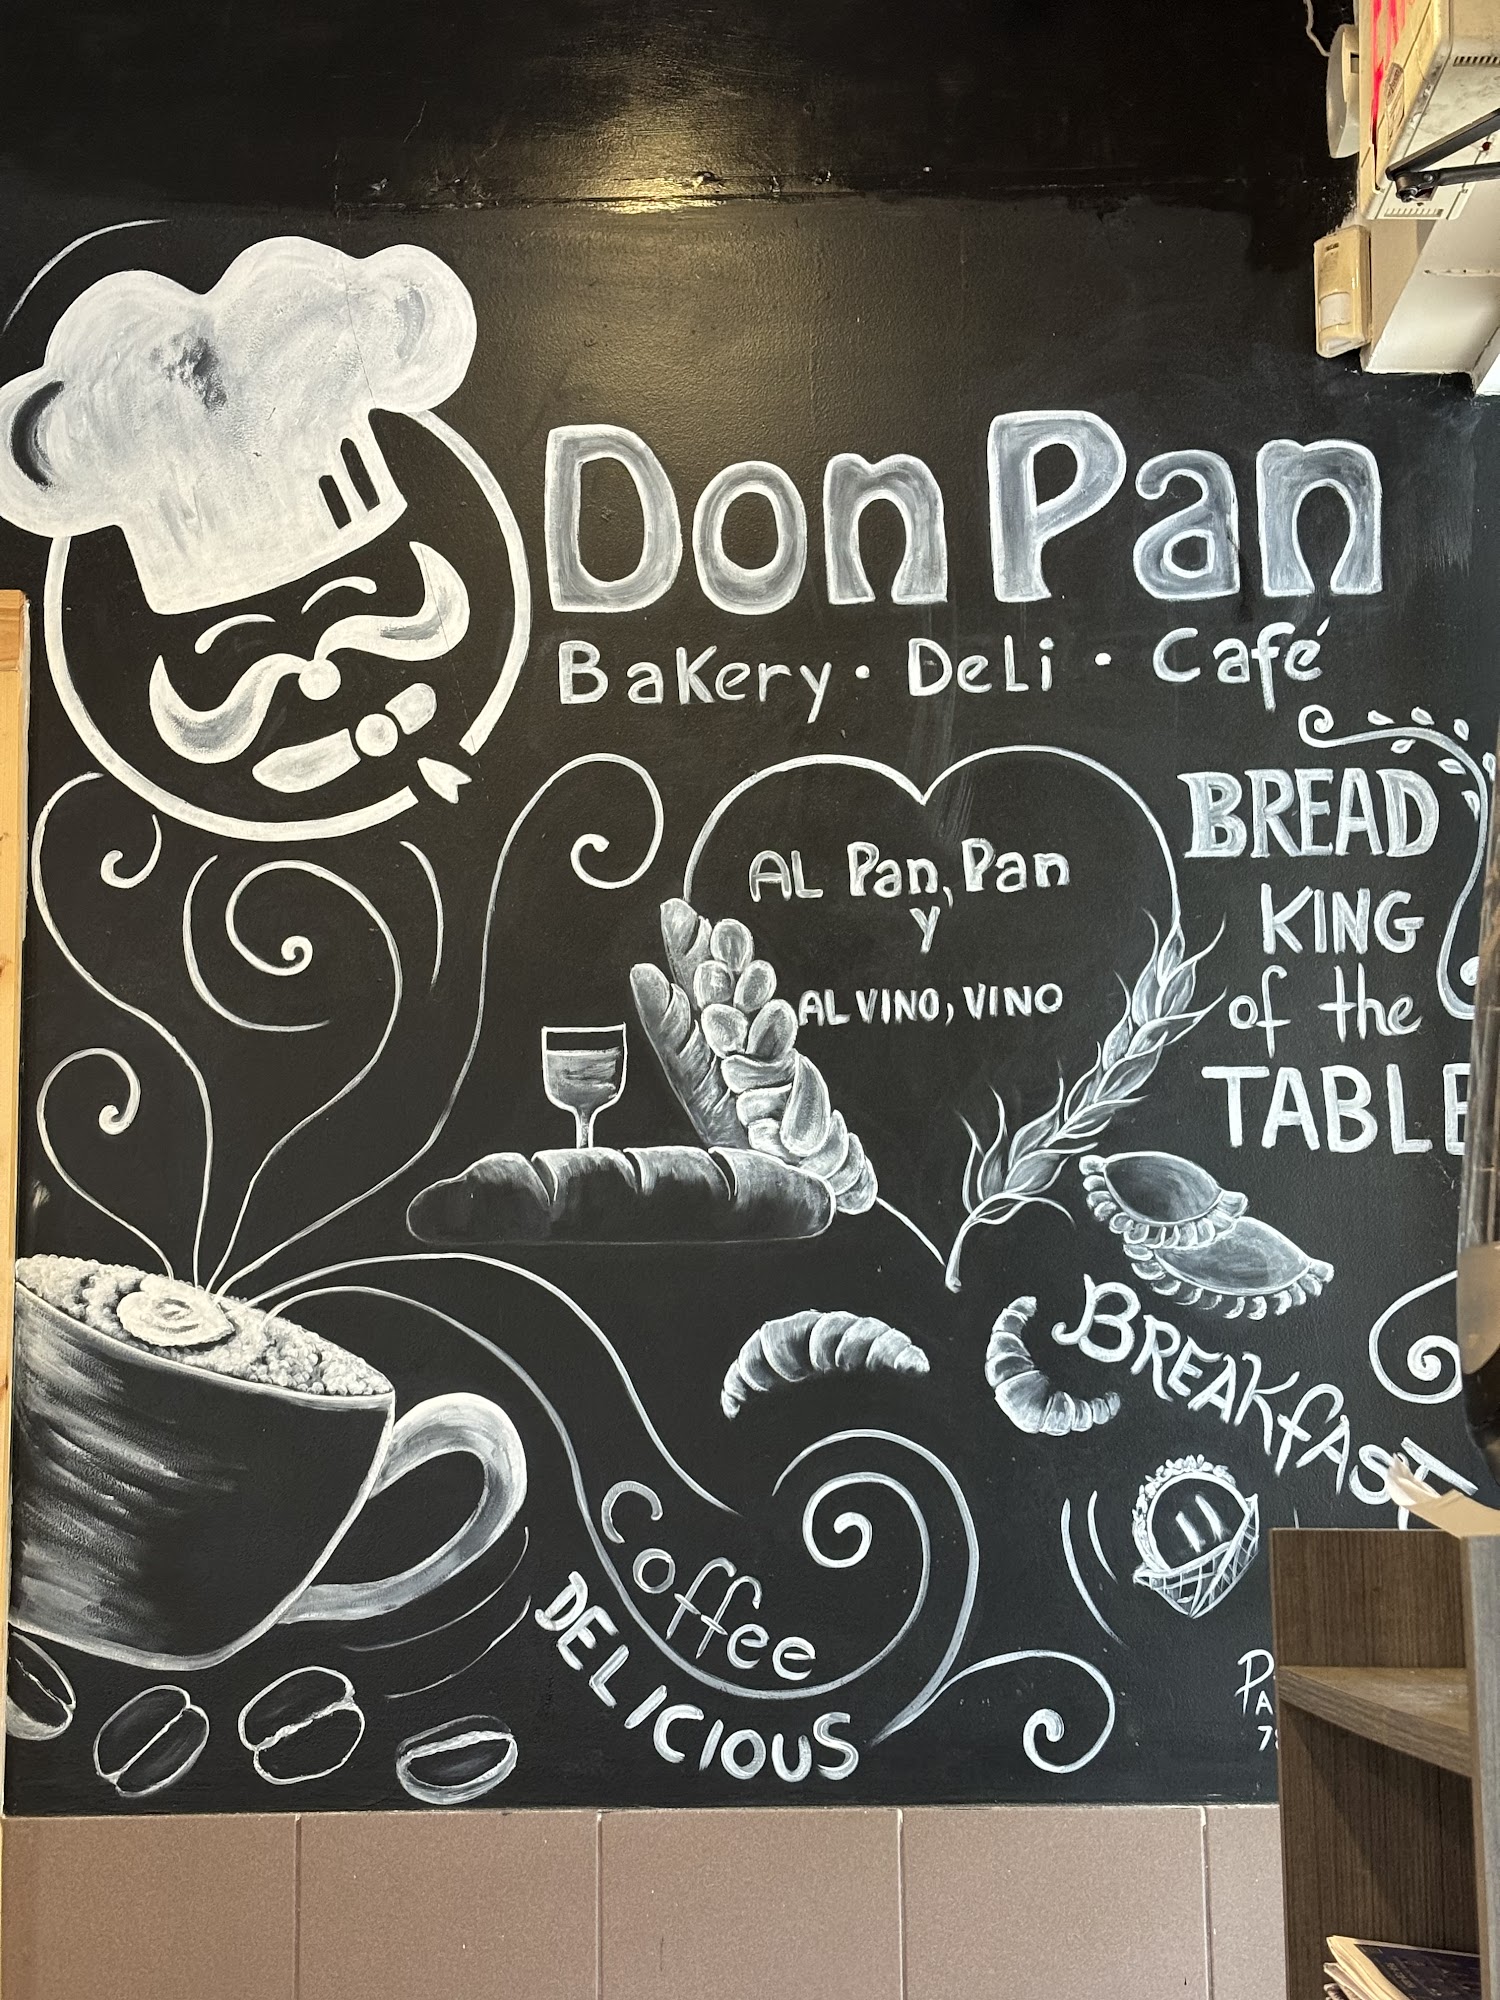 Don Pan
Bakery · Deli · Café
AL Pan, Pan
y
AL VINO, VINO
BREAD
KING
of the
TABLE
BREAKfAST
Coffee
DELICIOUS